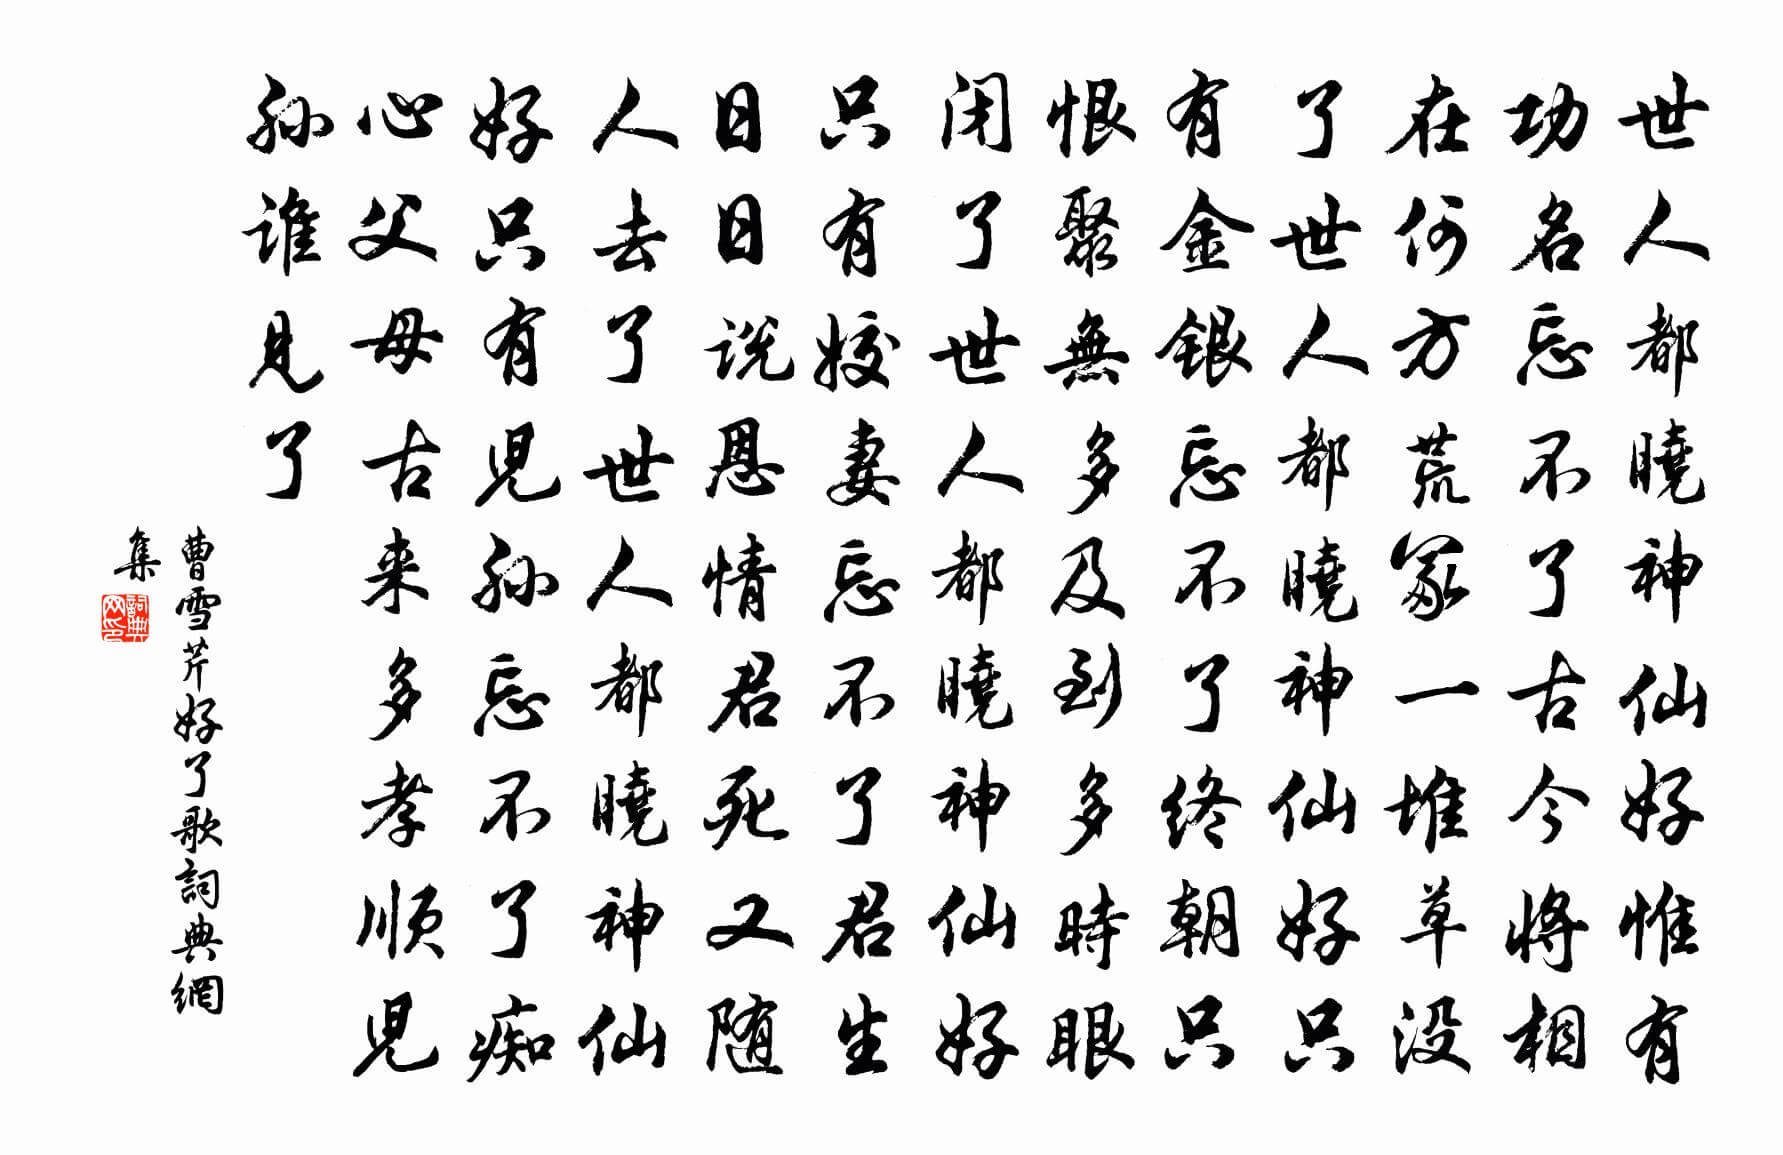 世人都曉神仙好惟有
功名忘不了古今將相
在何方荒冢一堆草没
了世人都曉神仙好只
有金銀忘不了终朝只
恨聚無多及到多時眼
闭了世人都曉神仙好
只有姣妻忘不了君生
日日说恩情君死又随
人去了世人都曉神仙
好只有兒孙忘不了痴
心父母古来多孝顺兒
孙谁見了
曹雪芹好了歌詞典網
集
詞典
网印